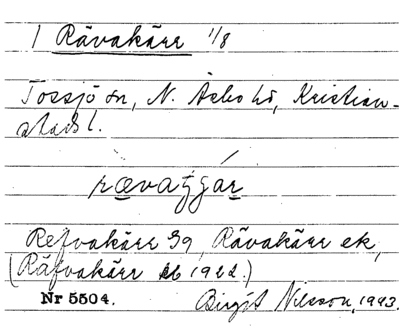 1 Rävakärr 1/8
Tossjö sn, N. Åsbo hd, Kristian-
stads l.
Refvakärr Jg, Rävakärr ek,
(Räfvakärr 1922.)
Nr 5504. Birgit Nilsson, 1993.